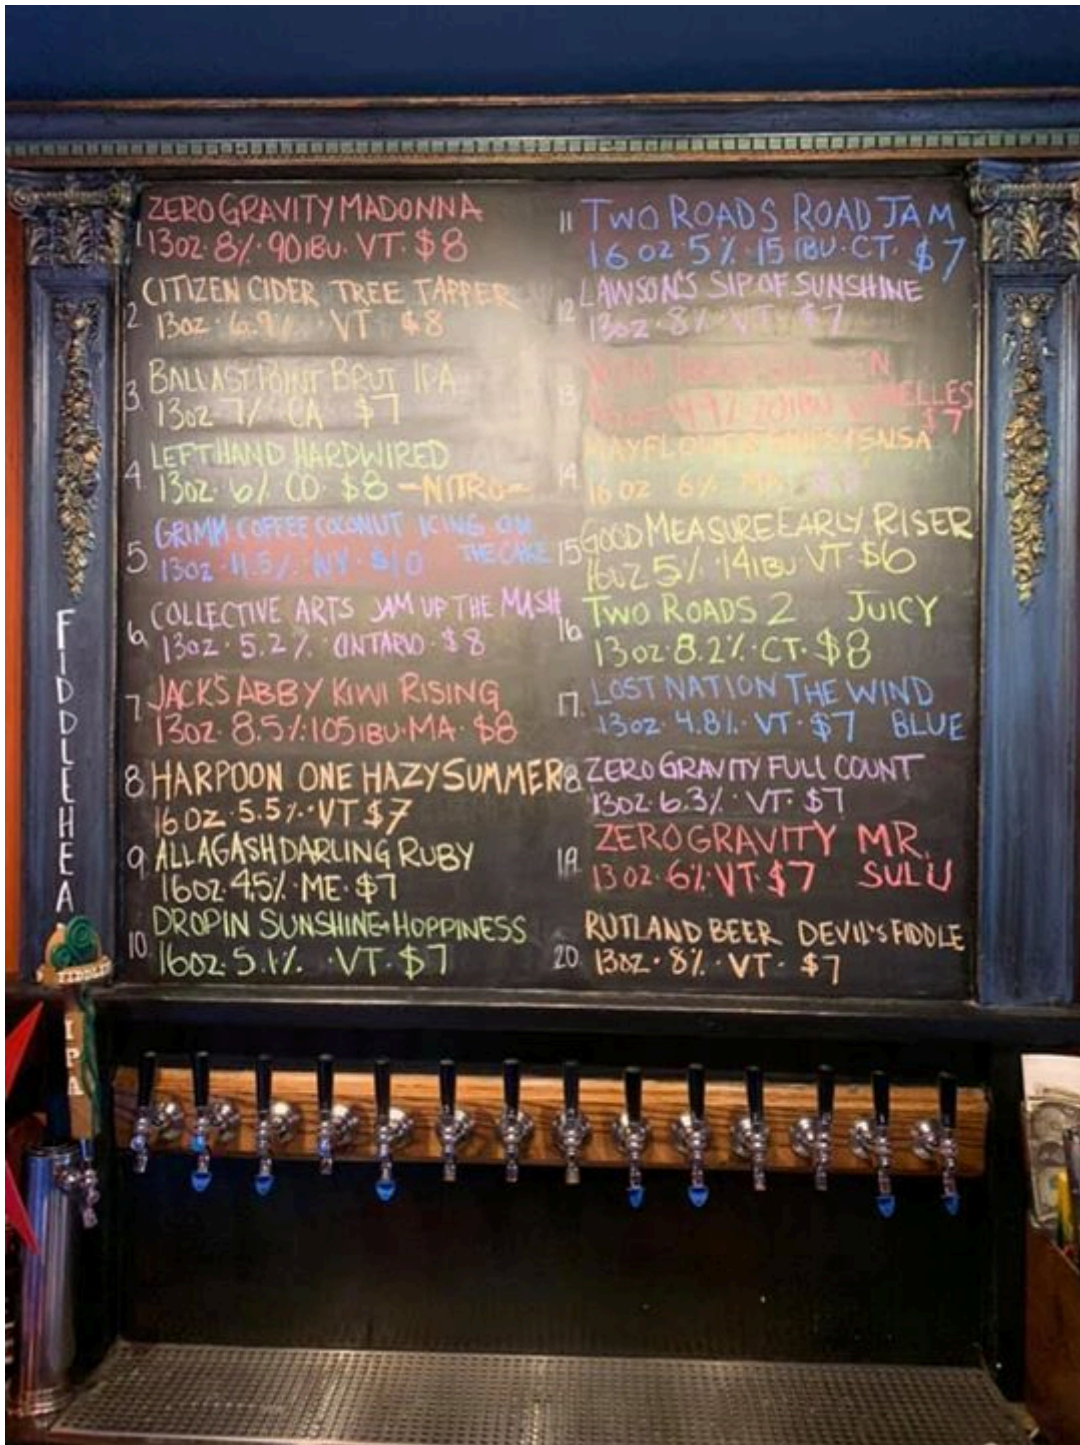 1 ZERO GRAVITY MADONNA
13OZ. 8%. 90IBU. VT. $8
2 CITIZEN CIDER TREE TAPPER
13OZ. 6.9% . VT $8
3. BALLAST POINT BRUT IPA
13OZ 7% CA $7
4 LEFTHAND HARDWIRED
13OZ. 6% CO. $8 -NITRO-
5. GRIMM COFFEE COCONUT ICING ON
THE CAKE
13OZ. 11.5%. NY. $10
6. COLLECTIVE ARTS JAM UP THE MASH
13OZ. 5.2%. ONTARIO. $8
7. JACK'S ABBY KIWI RISING
13OZ. 8.5%.105IBU.MA. $8
8 HARPOON ONE HAZY SUMMER
16OZ. 5.5%.VT $7
9. ALLAGASH DARLING RUBY
16OZ 4.5%. ME. $7
10. DROPIN SUNSHINE+HOPPINESS
16OZ. 5.1% .VT. $7
11 TWO ROADS ROAD JAM
16OZ. 5%. 15 IBU. CT. $7
12 LAWSON'S SIP OF SUNSHINE
13OZ. 8%. VT. $7
13
20IBU
$7
14
16OZ 6%
15 GOOD MEASURE EARLY RISER
16OZ 5% .14IBU VT. $6
16. TWO ROADS 2 JUICY
13OZ.8.2%.CT. $8
17. LOST NATION THE WIND
13OZ. 4.8%. VT. $7 BLUE
18 ZERO GRAVITY FULL COUNT
13OZ. 6.3%. VT. $7
19. ZERO GRAVITY MR.
13OZ. 6%.VT. $7 SULU
20. RUTLAND BEER DEVIL'S FIDDLE
13OZ. 8%. VT. $7
FIDDLEHEA
IPA